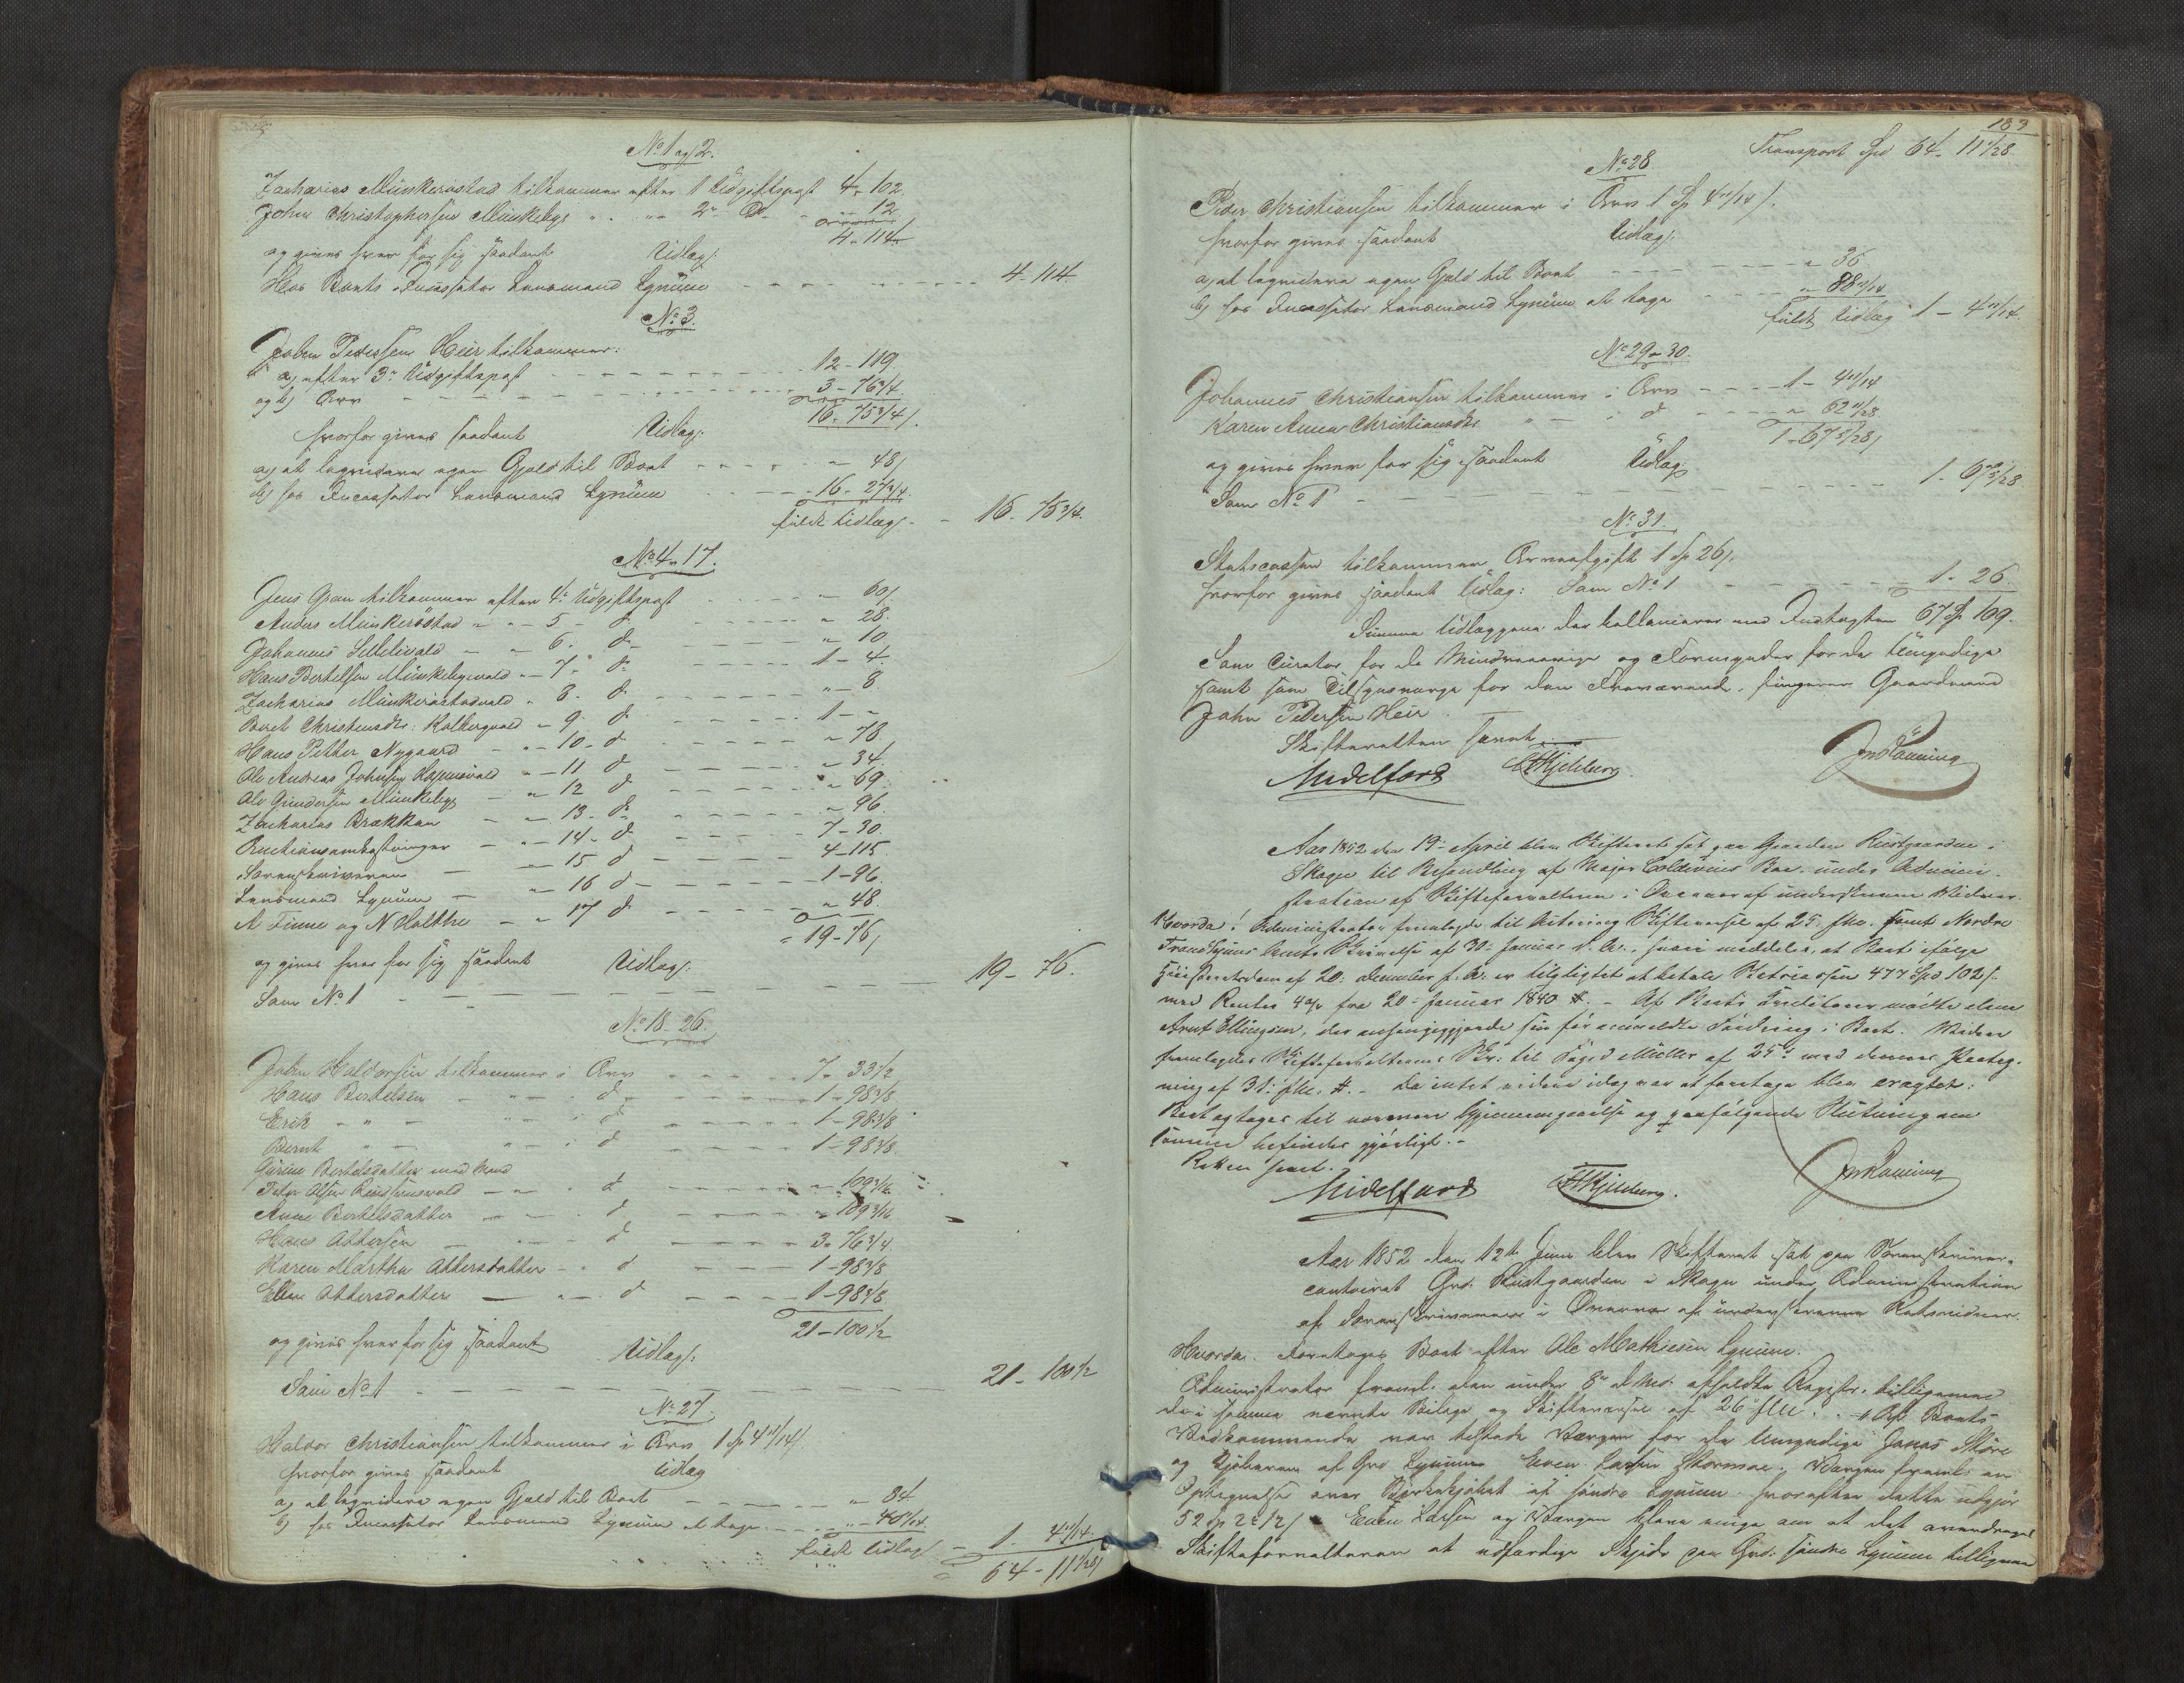 No 1 og 2.
Zacharias Münkerøstad tilkommer efter 1 Udgiftspost 4 - 102
John Christophersen Münkebye " " 2n do " - 12
4 - 114
og gives hver for sig saadant Udlæg:
Hos Boets Incassator Lensmand Lynum - - - 4 - 114.
No 3.
John Pedersen Heir tilkommer:
a) efter 3e Udgiftspost - - - 12 - 119
og b) Arv - - - 3 - 76 3/4
16 - 75 3/4 /.
hvorfor gives saadant Udlæg:
a) at liqvidere egen Gjæld til Boet - - - " 48/
b) hos Incassator Lensmand Lynum - - - 16 - 27 3/4
fuldt Udlæg - 16 - 75 3/4.
No 4 - 17.
Jens Gran tilkommer efter 4e Udgiftspost - - - 60/.
Anders Münkerøstad " - 5 - do - - - " 28.
Johannes - " 6. do - - - " 10
Hans Bertelsen Münkebyevald " 7 - do - - - 1 - 4.
Zacharias Münkerøstadvald " 8. do - - - " 8
Beret Christensdtr. Kolbergvald " 9. do - - - 1 - "
Hans Petter Nygaard " 10 - do - - - " 78
Ole Andreas Johnsen " 11 do - - - " 34.
Ole Gundersen Münkebye " 12 do - - - " 69.
Zacharias Brækkan " 13 - do - - - " 96.
Auctionsomkostninger " 14 - do - - - 7 - 30.
Sorenskriveren " 15 do - - - 4 - 115
Lensmand Lynum " 16 do - - - 1 - 96.
A Finne og N Holthe " 17 do - - - " 48.
= 19 - 76/
og gives hver for sig saadant Udlæg:
Som No 1 - - - 19 - 76.
No 18 - 26.
John Haldorsen tilkommer i Arv - - - 7 - 33 1/2
Hans Bertelsen - " - do - - - 1 - 98 3/8.
Erik - " - " - do - - - 1 - 98 3/8
Bernt - " - do - - - 1 - 98 3/8
Gurine Bertelsdatter med Mand
Peter Olsen - " - do - - - " 109 3/16
Anne Bertelsdatter - " - do - - - " 109 3/16
Hans Ottersen - " - do - - - 3 - 76 3/4
Karen Martha Ottersdatter - " do - - - 1 - 98 3/8
Ellen Ottersdatter - " - do - - - 1 - 98 3/8
21 - 100 1/2
og gives hver for sig saadant Udlæg:
Som No 1 - - - 21 - 100 1/2
No 27.
Haldor Christiansen tilkommer i Arv 1 Sp 4 11/14/
hvorfor gives saadant Udlæg
a) at liqvidere egen Gjæld til Boet - - - " 84
b) hos Incassator Lensmand Lynum at tage - - - " 40 11/14.
fuldt Udlæg - 1 - 4 11/14.
64 - 11 1/28/
183
Transport Spd 64 - 11 1/28
No 28.
Peder Christiansen tilkommer i Arv 1 Sp 4 11/14 /.
hvorfor gives saadant Udlæg:
a) at liqvidere egen Gjæld til Boet - - - " 36
b) hos Incassator Lensmand Lynum at tage - - - " 88 11/14
fuldt Udlæg 1 - 4 11/14.
No 29 - 30.
Johannes Christiansen tilkommer i Arv - - - 1 - 4 11/14
Karen Anna Christiansdtr. " - i do - - - " 62 11/28
1 - 67 5/28/
og gives hver for sig saadant Udlæg:
Som No 1 - - - 1 - 67 5/28
No 31.
Statscassen tilkommer Arveafgift 1 Sp 26/.
hvorfor gives saadant Udlæg: Som No 1 - - - 1 - 26.
Summa Udlæggene der ballancerer med Indtægten 67 Sp 109.
Som Curator for de Mindreaarige og Formynder for de Umyndige
samt som Tilsynsværge for den Fraværende, fungerer Gaardmand
John Pedersen Heir.
Skifteretten hævet.
Midelfart CHKjelberg. JnsLanning
Aar 1852 den 19de April blev Skifteret sat paa Gaarden Rustgaarden i
Skogn til Behandling af Major Coldevins Boe under Admini-
stration af Skifteforvalteren i Overvær af underskrevne Vidner.
Hvorda! Administrator fremlagde til Actering Skrivelse af 25. f.M. samt Nordre
Trondhjems Amts Skrivelse af 30. Januar d. A., hvori meddeles, at Boet ifølge
Høiesteretsdom af 20. December f. A. er tilpligtet at betale Statscassen 477 Spd 102 /.
med Renter 4 % fra 20 Januar 1840 #. - Af Boets Creditorer mødte alene
Arnt Ellingsen, der sin før anmeldte Fordring i Boet. Videre
fremlagdes Skifteforvalterens Skr. til Foged Müller af 25de med dennes Paateg-
ning af 31. f.M. #. - Da intet videre idag var at foretage blev eragtet:
Boet optages til nærmere Gjennemgaaelse og paafølgende Slutning om
saamen befindes gjørligt. -
Retten hævet.
Midelfart CHKjelberg. JnsLanning
Aar 1852 den 12te Juni blev Skifteret sat paa Sorenskriver-
contoiret Grd. Rustgaarden i Skogn under Administration
af Sorenskriveren i Overvær af underskrevne Retsvidner.
Hvorda. Foretoges Boet efter Ole Mathiesen Lynum.
Administrator freml. den under 8de d. Md. afholdte Registr. tilligemed
de i samme nævnte Bilage og Skiftevæsel af 26 f.M. . # Af Boets
Vedkommende var tilstede Værgen for de Umyndige Jonas
og Kjøberen af Grd Lynum Even Larsen . Værgen freml. en
Optegnelse over af søndre Lynum hvorefter dette udgjør
52 Sp 2 12/ Even Larsen og Værgen bleve enige om at det overdrages
Skifteforvalteren at udfærdige Skjøde paa Grd. søndre Lynum tilligemed